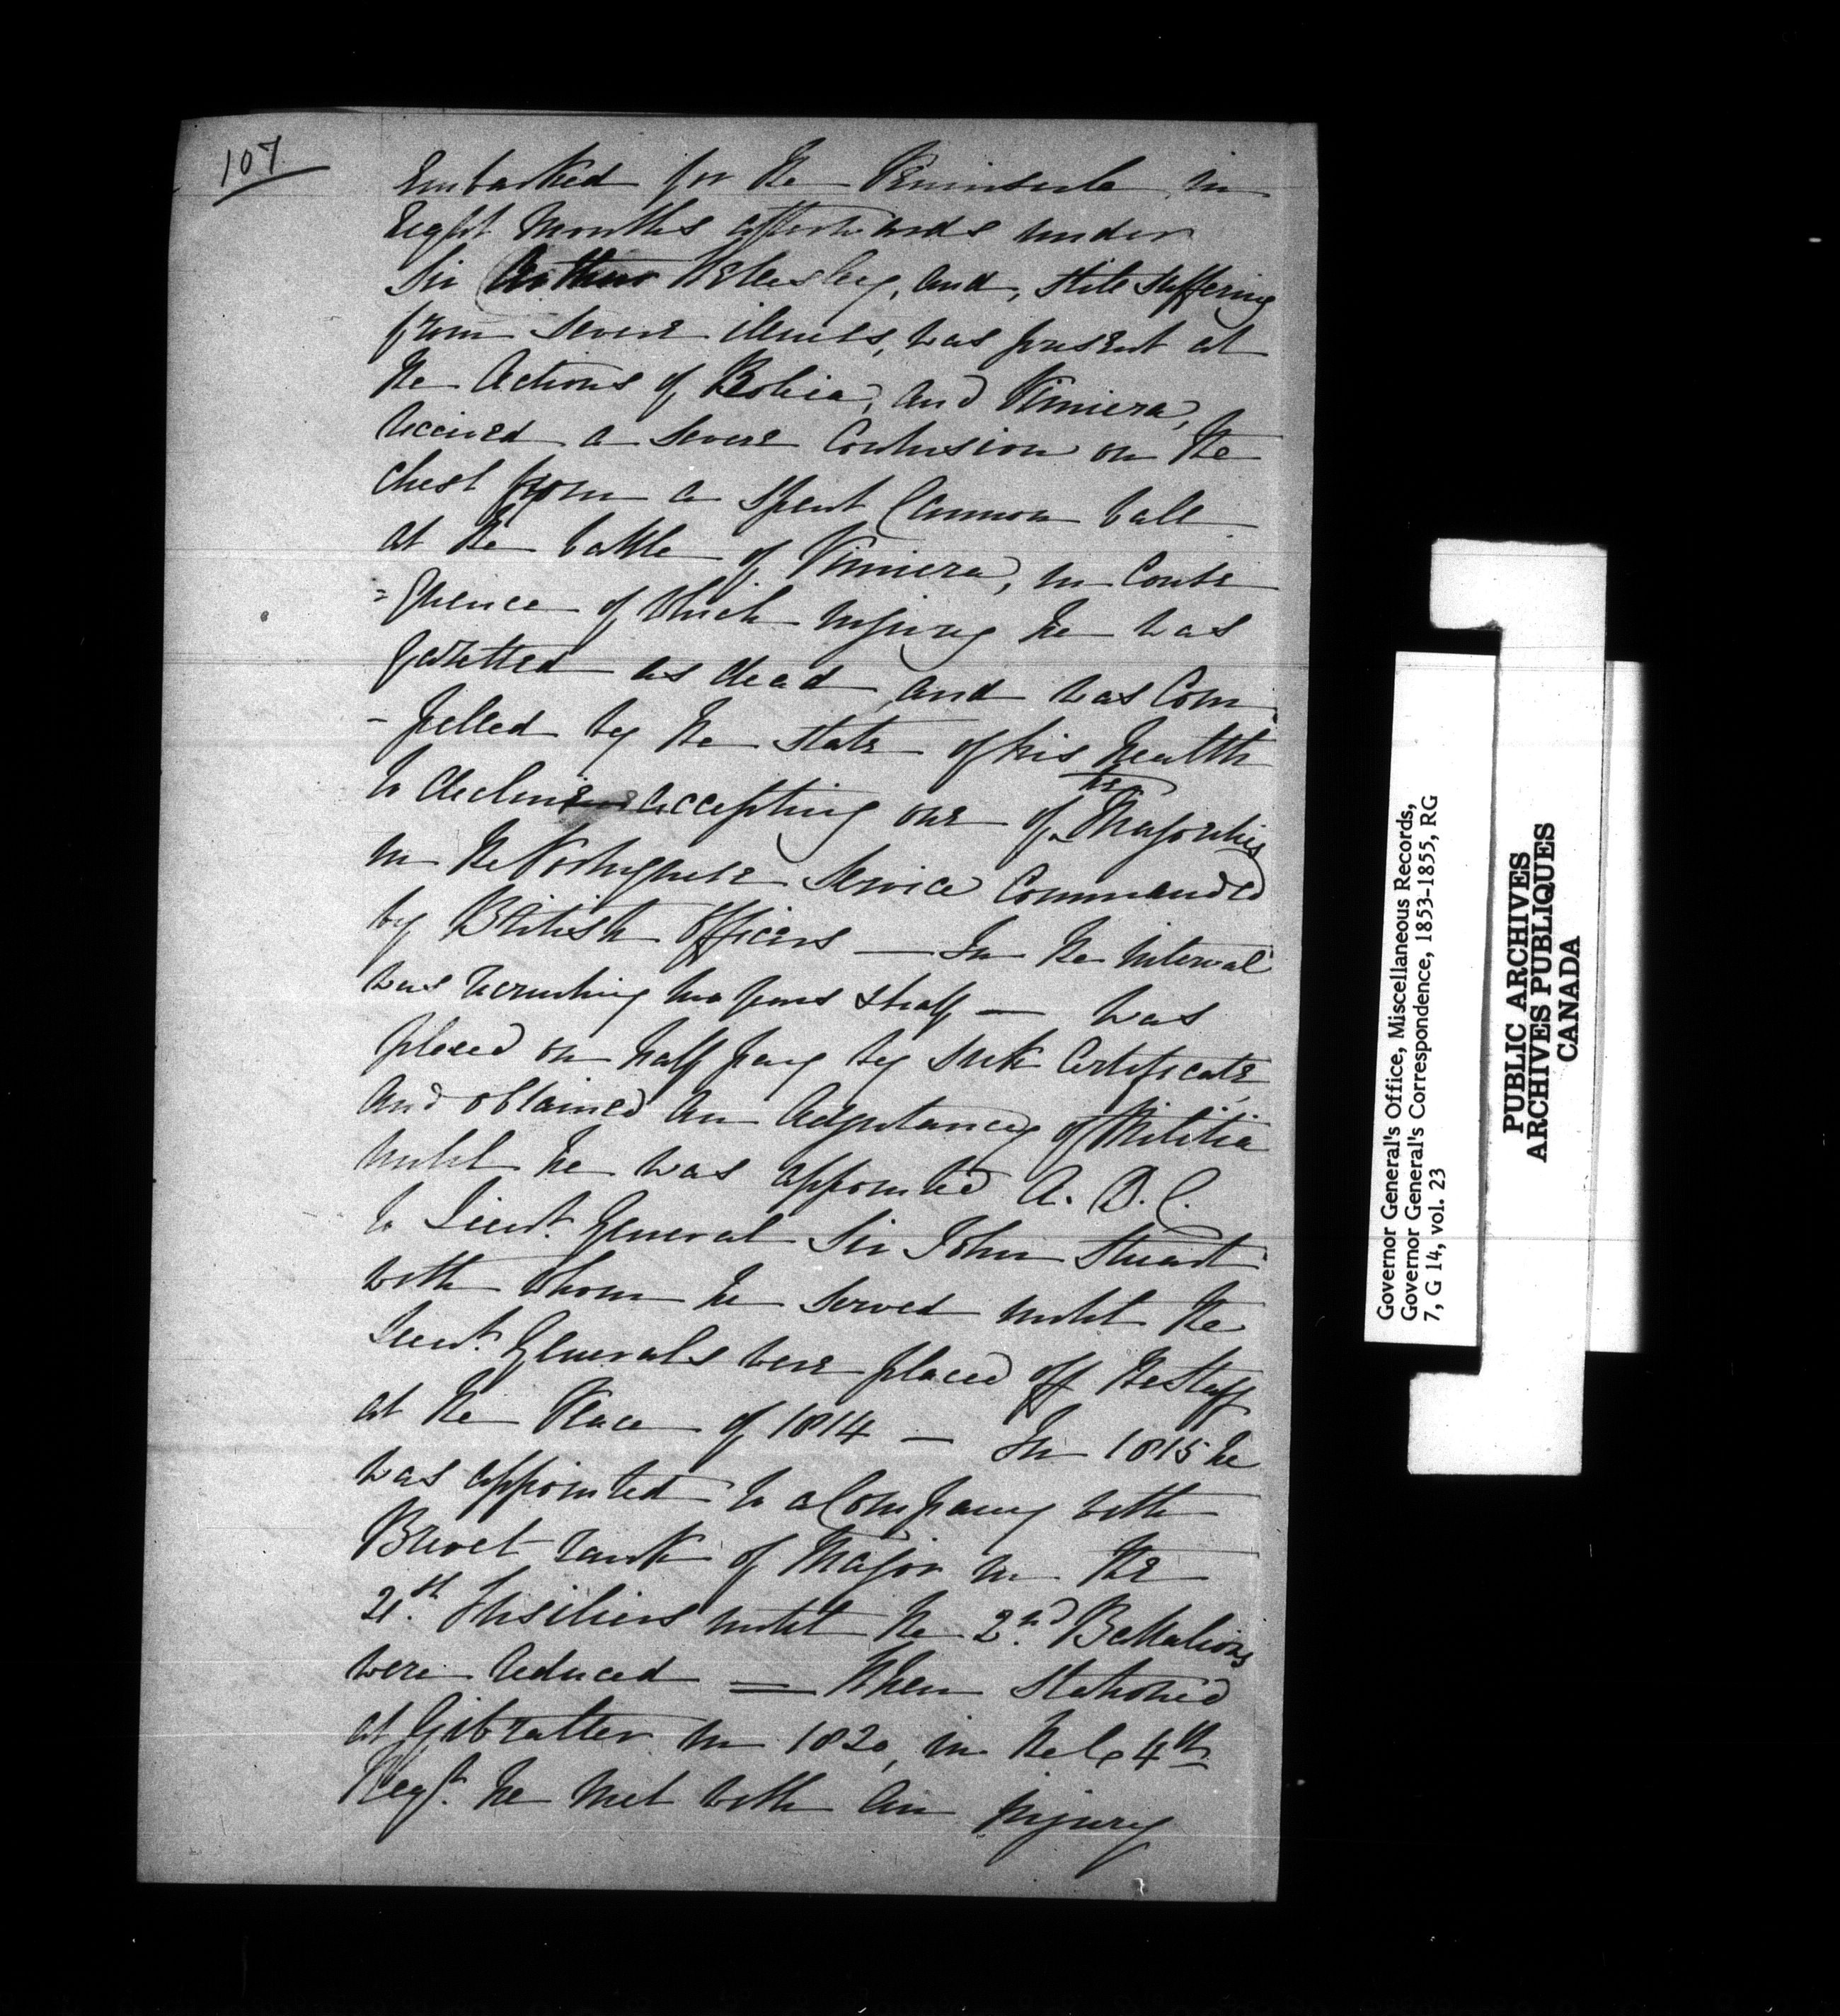 107
Embarked for the Peninsula in
Eight Months afterwards under
Sir Arthur Wellesley, and, still suffering
from severe illness, was present at
the Actions of Rolica, and Vimiera,
received a severe Contusion on the
chest from a spent Cannon ball
at the battle of Vimiera, in Conse
=quence of which injury he was
gazetted as dead and was Com
-pelled by the state of his health
to decline accepting one of the Majorities
in the Portuguese Service Commanded
by British Officers — In the interval
was recruiting two years & half — was
placed on half pay by sick Certificate
and obtained an Adjutancy of Militia
until he was appointed A. D. C.
to Lieut. General Sir John Stuart
with whom he served until the
Lieut. Generals were placed off the staff
at the Peace of 1814 — In 1815 he
was appointed to a Company with
Brevet rank of Major in the
21.st Fusiliers until the 2.nd Battalions
were reduced = When stationed
at Gibralter in 1820, in the 64th
Regt. he met with an injury
Governor General's Office, Miscellaneous Records,
Governor General's Correspondence, 1853-1855, RG
7, G 14, vol. 23
PUBLIC ARCHIVES
ARCHIVES PUBLIQUES
CANADA